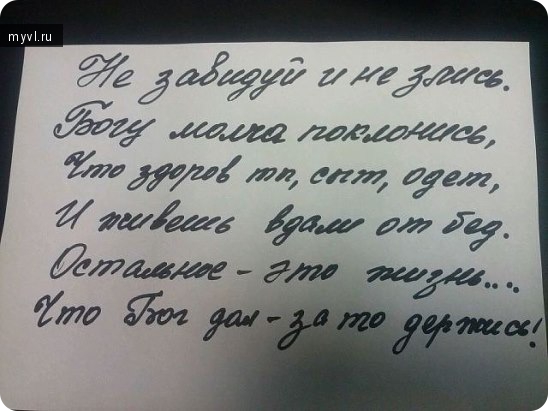 myvl.ru
Не завидуй и не злись.
Богу молча поклонись,
Что здоров ты, сыт, одет,
И живешь вдали от бед.
Остальное - это жизнь....
Что Бог дал - за то держись!